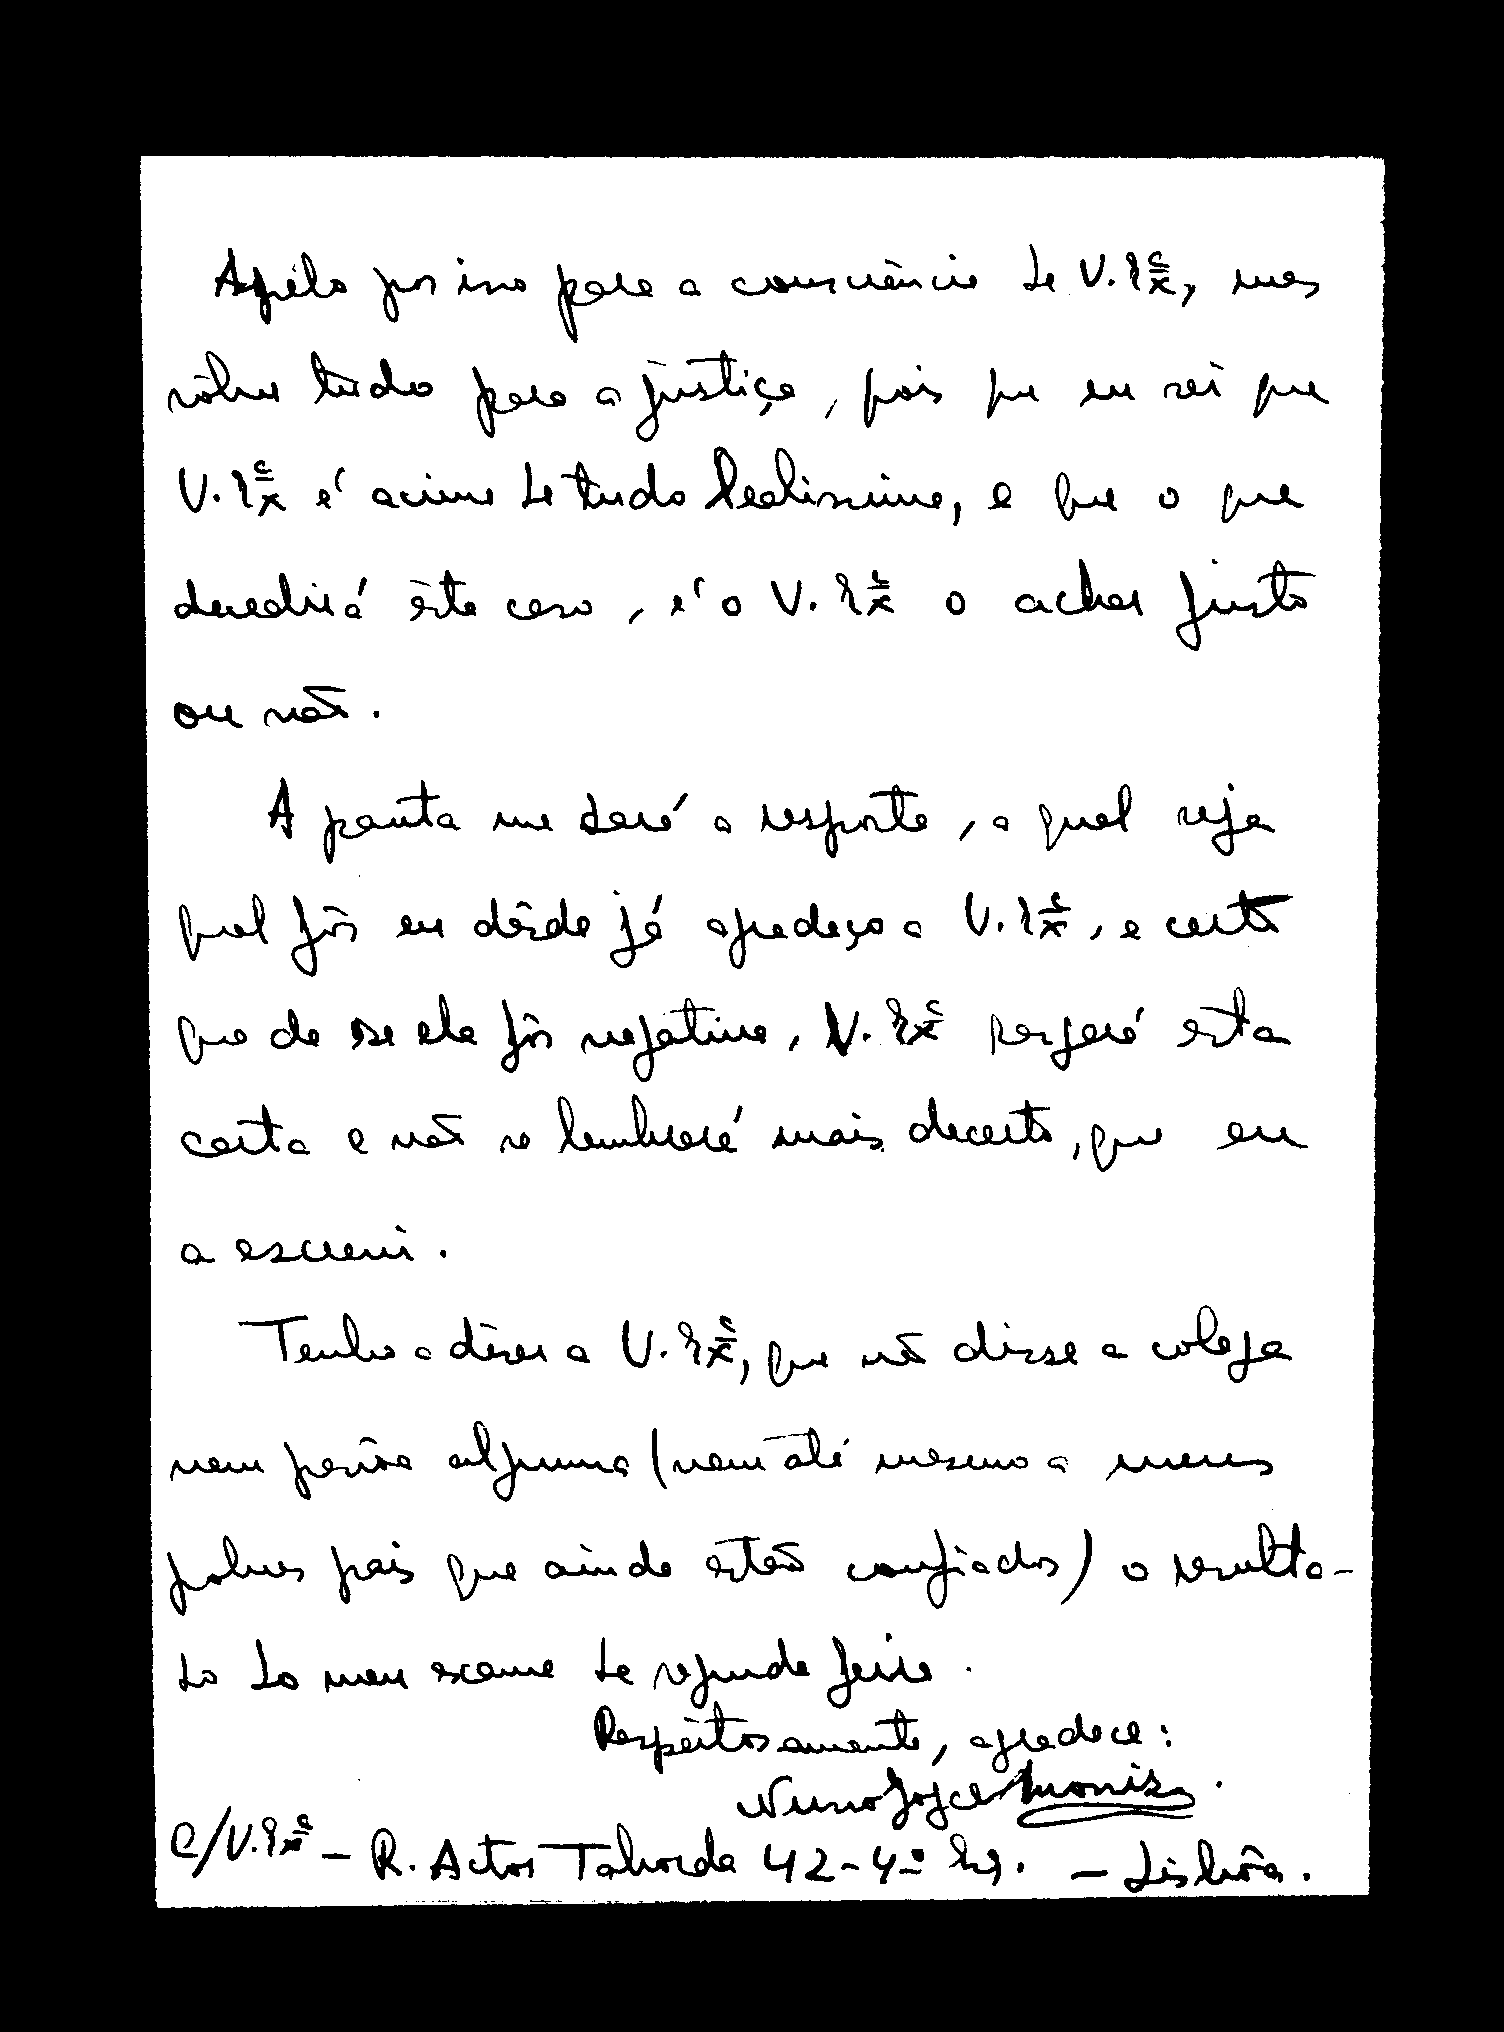 Apélo por isso para a consciência de V. Exᶜ, mas
sôbre tudo para a justiça, pois que eu sei que
V. Exᶜ é acima de tudo lealissimo, e que o que
decedirá êste caso, é o V. Exᶜ o achar justo
ou não.
A pauta me dará a resposta, a qual seja
qual fôr eu dêsde já agradeço a V. Exᶜ, e certo
que de se ela fôr negativa, V. Exᶜ rasgará esta
carta e não se lembrará mais decerto, que eu
a escrevi.
Tenho a dizer a V. Exᶜ, que não disse a colega
nem pessôa alguma (nem até mesmo a meus
pobres pais que ainda estão confiados) o resulta-
do do meu exame de segunda feira.
Respeitosamente, agradece:
Nuno Joyce Moniz.
C/V. Exᶜ – R. Actor Taborda 42-4º Esq. – Lisbôa.